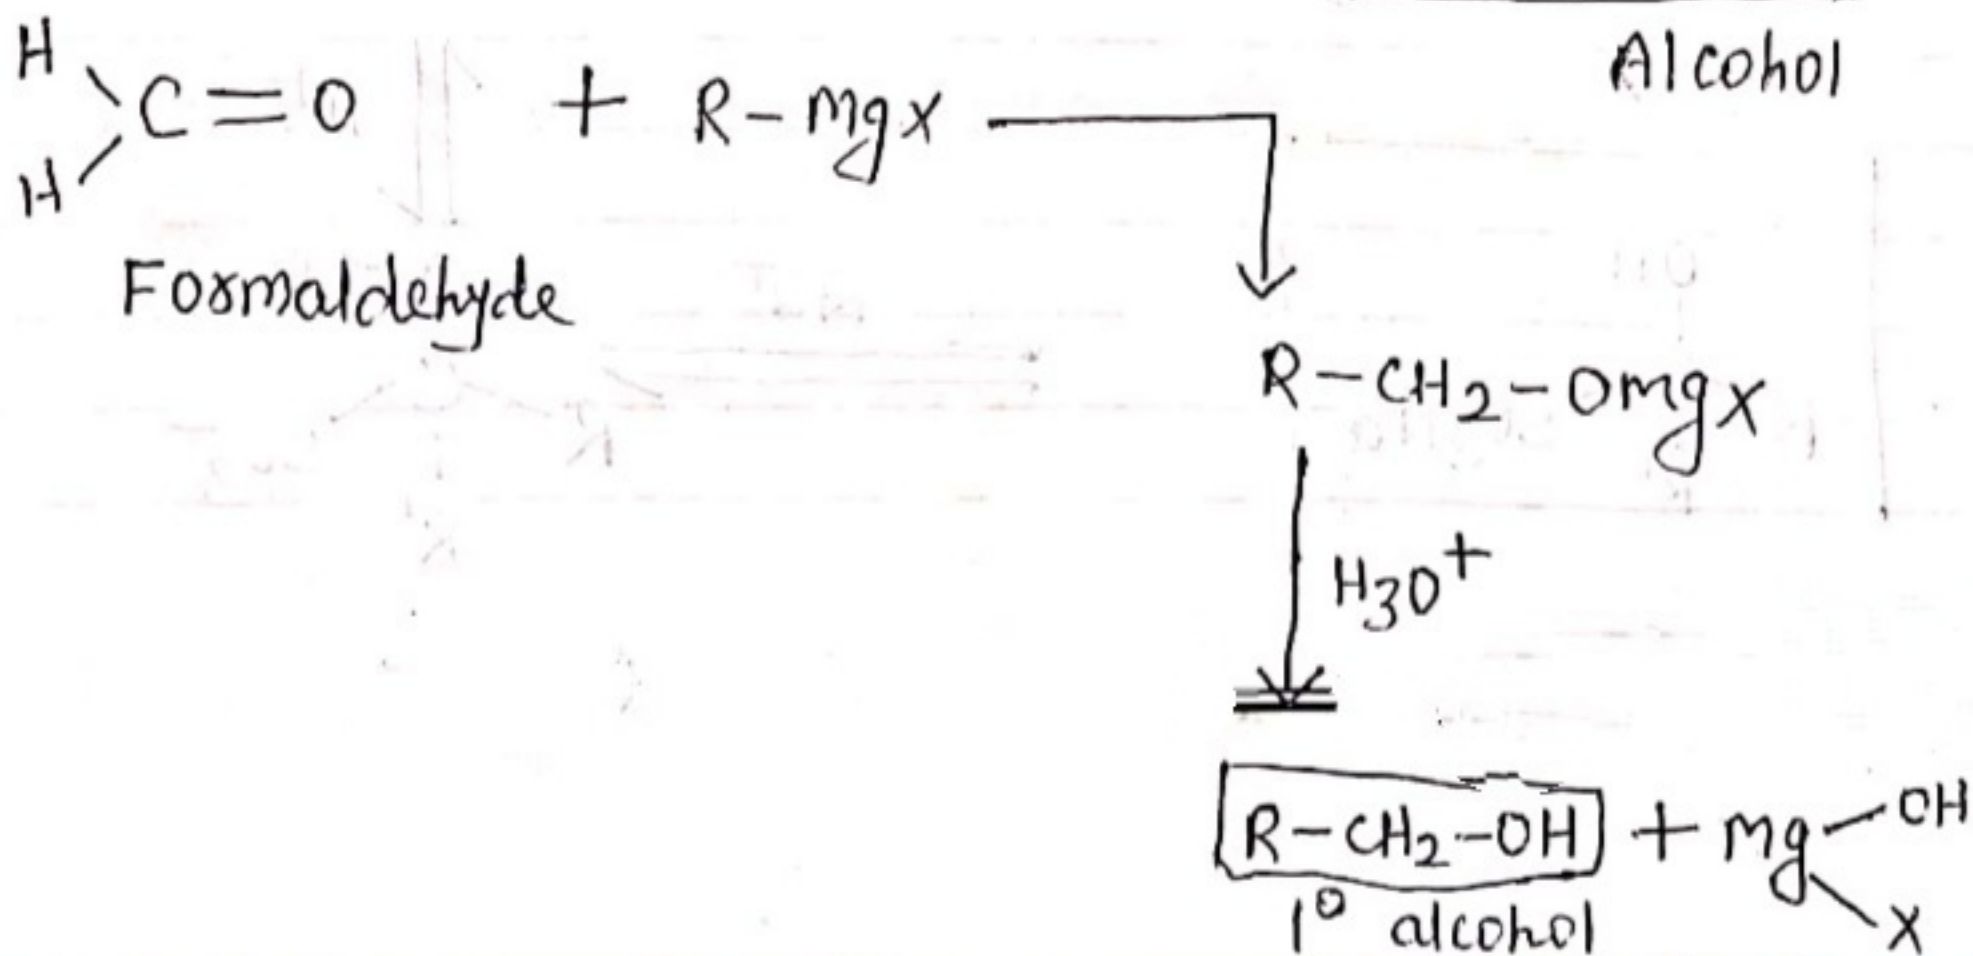 Alcohol
H
C=O + R-MgX
H
Formaldehyde
R-CH2-OMgX
H3O+
R-CH2-OH + Mg-OH
X
1° alcohol